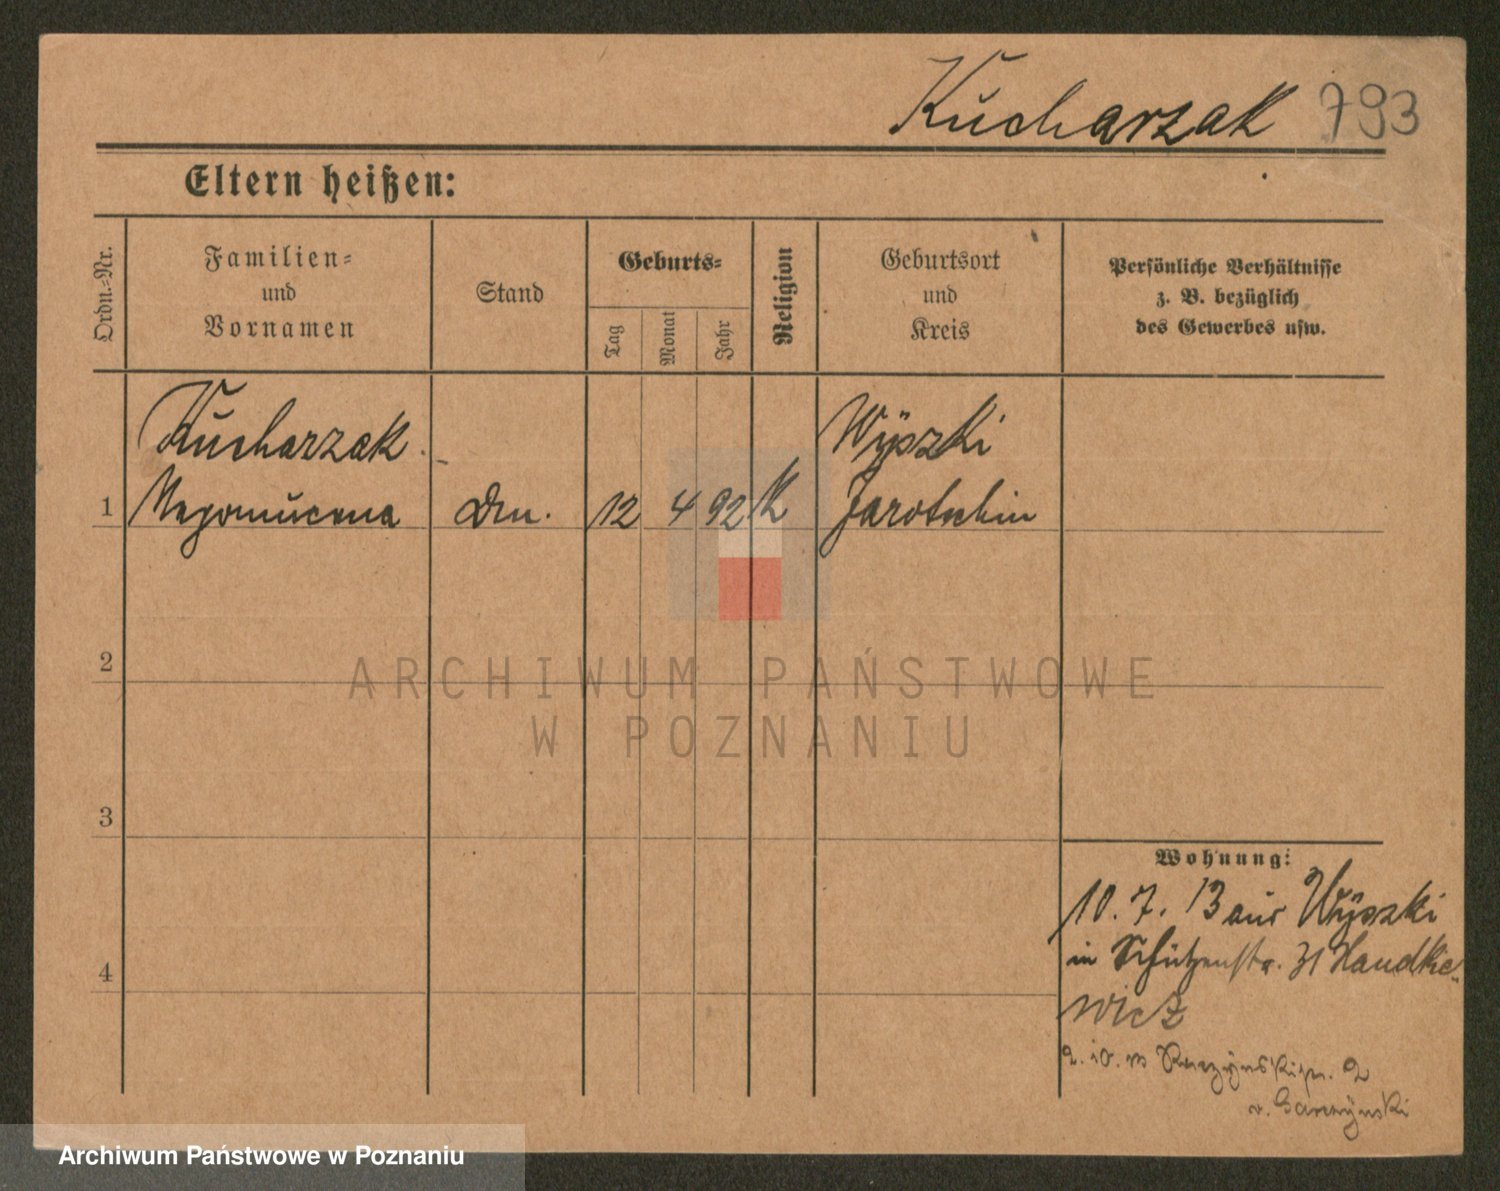 Kucharzak 793
Eltern heißen:
Ordn.-Nr.
Familien-
und
Vornamen
Stand
Geburts-
Tag
Monat
Jahr
Religion
Geburtsort
und
Kreis
Persönliche Verhältnisse
z. B. bezüglich
des Gewerbes usw.
Kucharzak
1 Nepomucena Dm. 12 4 92 K
Wyszki
Jarotschin
2
3
4
Wohnung:
10. 7. 13 aus Wyszki
in Schützenstr. 31 Handkie-
wicz
2. 10. 13 2
v. Garczynski
ARCHIWUM PAŃSTWOWE
W POZNANIU
Archiwum Państwowe w Poznaniu